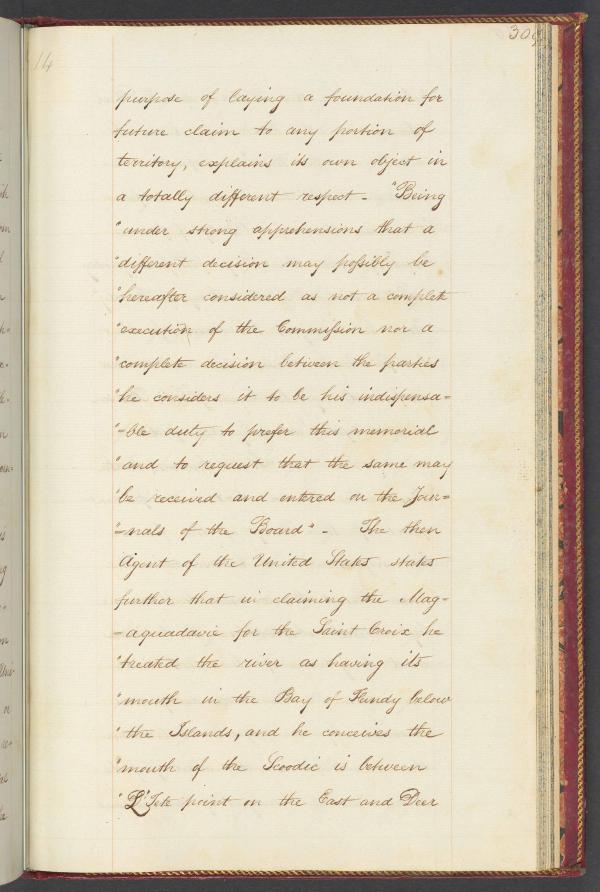 14
309
purpose of laying a foundation for
future claim to any portion of
territory, explains its own object in
a totally different respect - "Being
"under strong apprehensions that a
"different decision may possibly be
"hereafter considered as not a complete
"execution of the Commission nor a
"complete decision between the parties
"he considers it to be his indispensa=
"=ble duty to prefer this memorial
"and to request that the same may
"be received and entered on the Jour=
"=nals of the Board" - The then
Agent of the United States states
further that in claiming the Mag=
=aquadavic for the Saint Croix he
"treated the river as having its
"mouth in the Bay of Fundy below
"the Islands, and he conceives the
"mouth of the Scoodic is between
"L'Tete point on the East and Deer